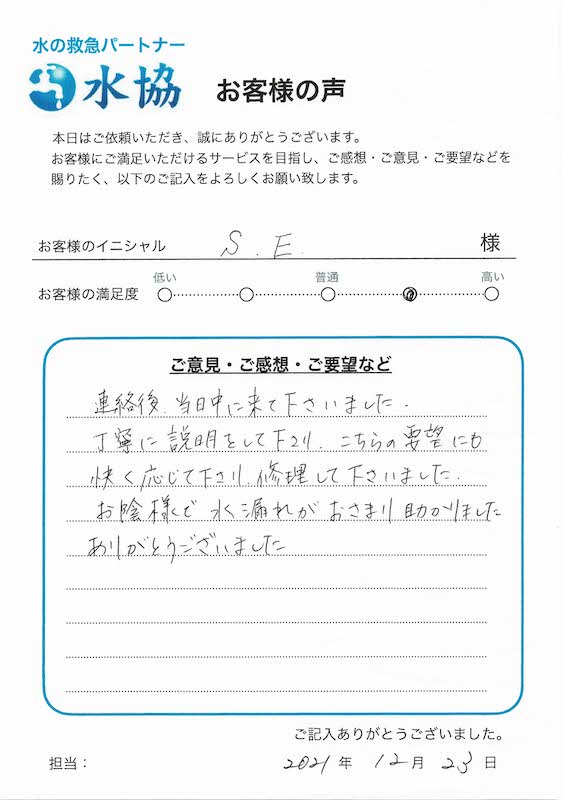 水の救急パートナー
水協 お客様の声
本日はご依頼いただき、誠にありがとうございます。
お客様にご満足いただけるサービスを目指し、ご感想・ご意見・ご要望などを
賜りたく、以下のご記入をよろしくお願い致します。
お客様のイニシャル S . E. 様
低い 普通 高い
お客様の満足度
ご意見・ご感想・ご要望など
連絡後、当日中に来て下さいました.
丁寧に説明をして下さり、こちらの要望にも
快く応じて下さり、修理して下さいました.
お陰様で水漏れがおさまり助かりました
ありがとうございました
ご記入ありがとうございました。
担当： 2021 年 12 月 23 日